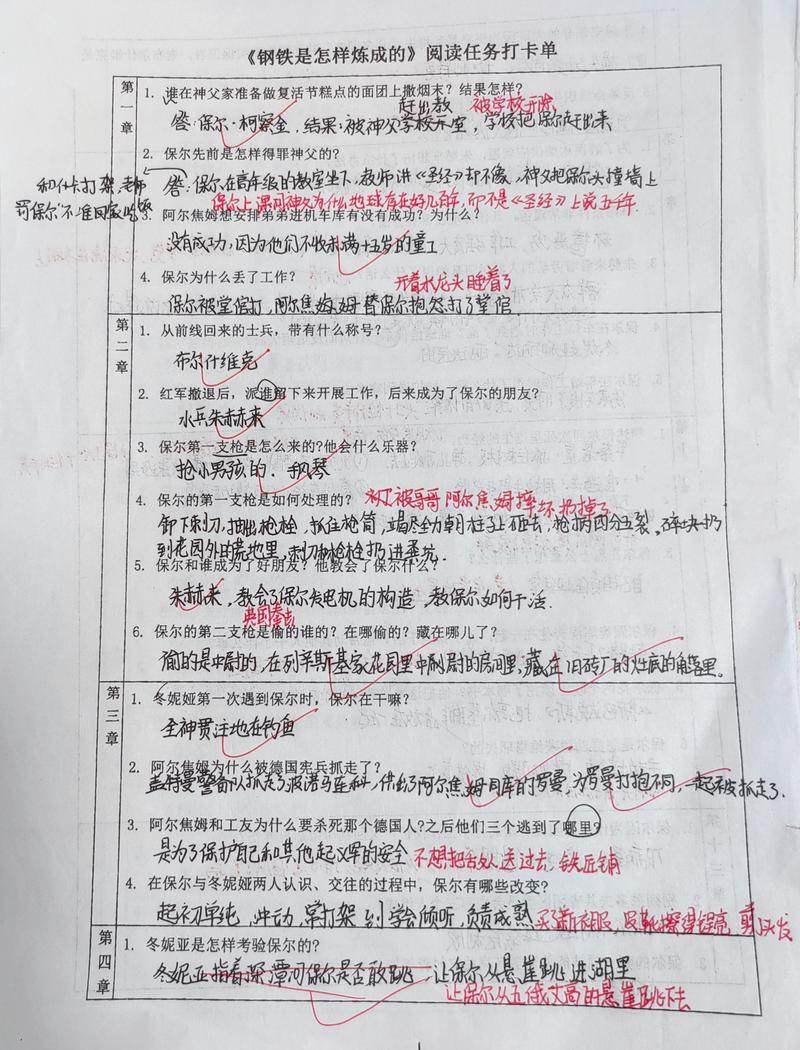 《钢铁是怎样炼成的》阅读任务打卡单
第一章
1. 谁在神父家准备做复活节糕点的面团上撒烟末？结果怎样？
赶出教 被学校开除
答：保尔·柯察金，结果：被神父学校示室，学校把保尔赶出来
2. 保尔先前是怎样得罪神父的？
和什卡打架，老师
罚保尔"不准回家吃饭
答：保尔在高年级的教室坐下，教师讲《圣经》却不像，神父把保尔头撞墙上
保尔上课问神父为什么地球存在好几百年，而不是《圣经》上说五千年.
3. 阿尔焦姆想安排弟弟进机车库有没有成功？为什么？
没有成功，因为他们不收未满十五岁的童工
4. 保尔为什么丢了工作？
开着水龙头睡着了
保尔被堂倌打，阿尔焦姆替保尔抱怨打了堂倌
第二章
1. 从前线回来的士兵，带有什么称号？
布尔什维克
2. 红军撤退后，派谁留下来开展工作，后来成为了保尔的朋友？
水兵朱赫来
3. 保尔第一支枪是怎么来的?他会什么乐器？
抢小男孩的. 手风琴
4. 保尔的第一支枪是如何处理的？
被哥哥阿尔焦姆摔坏扔掉了
卸下刺刀，抽出枪栓，抓住枪筒，竭尽全力朝柱子上砸去，枪柄四分五裂。碎块扔
到花园外的荒地里，刺刀和枪栓扔进茅坑.
5. 保尔和谁成为了好朋友？他教会了保尔什么？
朱赫来，教会了保尔发电机的构造，教保尔如何干活.
英国拳击
6. 保尔的第二支枪是偷的谁的？在哪偷的？藏在哪儿了？
偷的是中尉的，在列辛斯基家花园里中尉的房间里，藏在旧砖厂的灶底的角落里。
第三章
1. 冬妮娅第一次遇到保尔时，保尔在干嘛？
全神贯注地在钓鱼
2. 阿尔焦姆为什么被德国宪兵抓走了？
警备队抓走了波诺马连科，供出了阿尔焦姆同库的罗曼，为罗曼打抱不同，一起被抓走了.
3. 阿尔焦姆和工友为什么要杀死那个德国人?之后他们三个逃到了哪里?
是为了保护自己和其他起义军的安全 不想把敌人送过去，铁匠铺
4. 在保尔与冬妮娅两人认识、交往的过程中，保尔有哪些改变？
起初单纯，冲动，常打架 到 学会倾听，负责成熟 买了新衣服，皮靴擦得锃亮，剪了头发
第四章
1. 冬妮亚是怎样考验保尔的？
冬妮亚指着深潭问保尔是否敢跳，让保尔从悬崖跳进湖里
让保尔从五俄丈高的悬崖跳下去